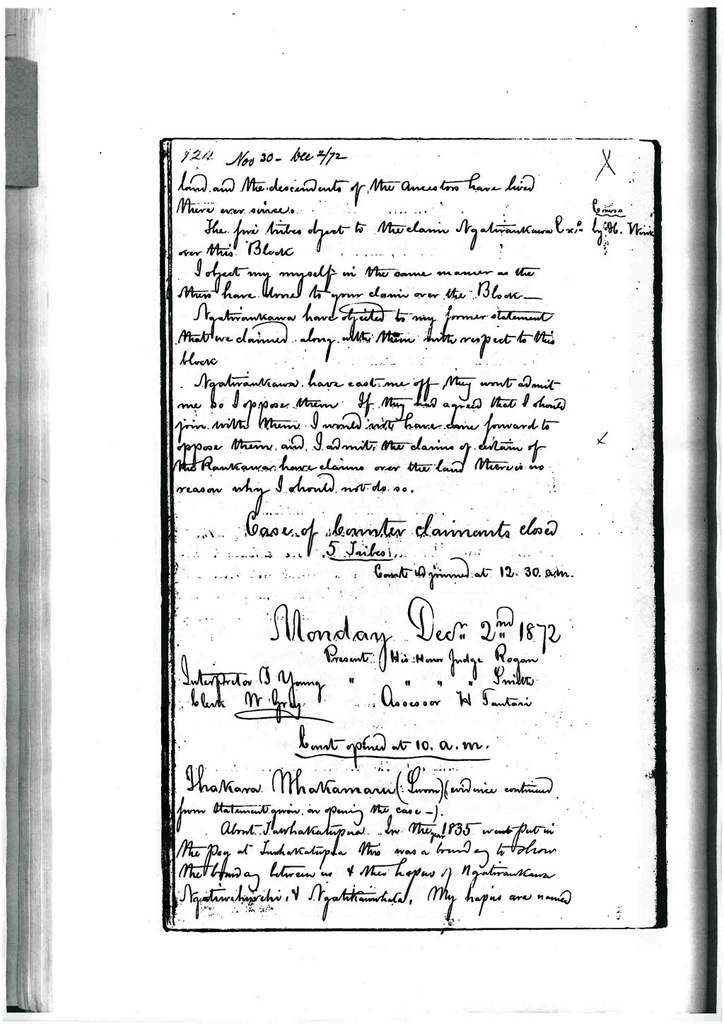 Nov 30 - Dec 2/72
land and the descendents of the Ancestors have lived
there ever since.
The five tribes object to the claim Ngatiraukawa
over this Block
Cross
Exn by H.
I object my myself in the same manner as the
others have done to your claim over the Block —
Ngatiraukawa have objected to my former statement
that we claimed along with them with respect to this
block
Ngatiraukawa have cast me off they wont admit
me so I oppose them If they had agreed that I should
join with them I would not have come forward to
oppose them and I admit the claims of certain of
the Raukawa have claims over the land there is no
reason why I should not do so.
Case of Counter claimants closed
5 Tribes
Court adjourned at 12.30 a.m.
Monday Decr 2nd 1872
Present His Honor Judge Rogan
Interpreter T Young " " " Smith
Clerk W Grey Assessor H Tautari
Court opened at 10. a.m.
Ihakara Whakamaru (: Sworn) (evidence continued
from statement given on opening the case -).
About In the year 1835 went put in
the peg at this was a bounday to show
the bounday between us & the hapus of Ngatiraukawa
& My hapus are named